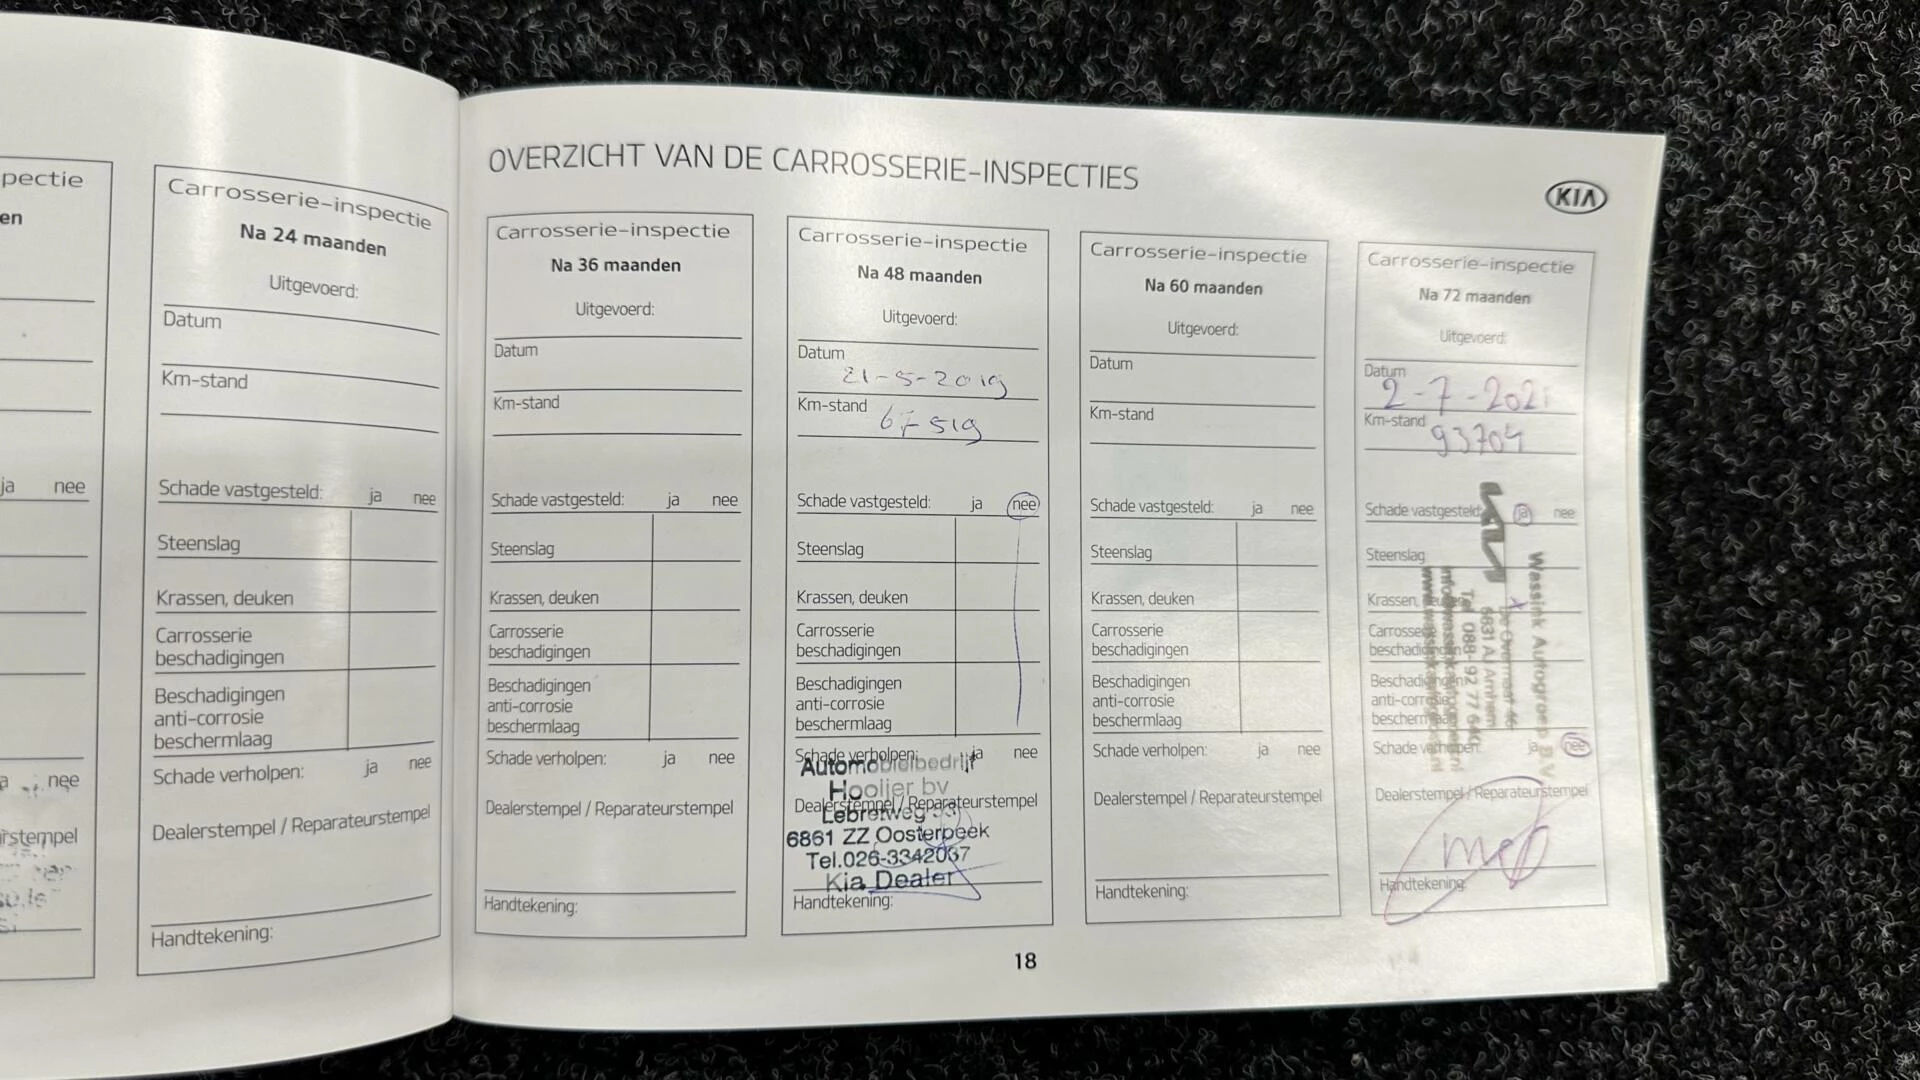 pectie
en
ja nee
nee
stempel
Carrosserie-inspectie
Na 24 maanden
Uitgevoerd:
Datum
Km-stand
Schade vastgesteld: ja nee
Steenslag
Krassen, deuken
Carrosserie
beschadigingen
Beschadigingen
anti-corrosie
beschermlaag
Schade verholpen: ja nee
Dealerstempel / Reparateurstempel
Handtekening:
OVERZICHT VAN DE CARROSSERIE-INSPECTIES
KIA
Carrosserie-inspectie
Na 36 maanden
Uitgevoerd:
Datum
Km-stand
Schade vastgesteld: ja nee
Steenslag
Krassen, deuken
Carrosserie
beschadigingen
Beschadigingen
anti-corrosie
beschermlaag
Schade verholpen: ja nee
Dealerstempel / Reparateurstempel
Handtekening:
Carrosserie-inspectie
Na 48 maanden
Uitgevoerd:
Datum
21-5-2019
Km-stand
Schade vastgesteld: ja nee
Steenslag
Krassen, deuken
Carrosserie
beschadigingen
Beschadigingen
anti-corrosie
beschermlaag
Schade verholpen: ja nee
Automobielbedrijf
Hooijer bv
Dealerstempel / Reparateurstempel
Lebretweg
6861 ZZ Oosterbeek
Tel.026-3342037
Kia Dealer
Handtekening:
Carrosserie-inspectie
Na 60 maanden
Uitgevoerd:
Datum
Km-stand
Schade vastgesteld: ja nee
Steenslag
Krassen, deuken
Carrosserie
beschadigingen
Beschadigingen
anti-corrosie
beschermlaag
Schade verholpen: ja nee
Dealerstempel / Reparateurstempel
Handtekening:
Carrosserie-inspectie
Na 72 maanden
Uitgevoerd:
Datum
2-7-2021
Km-stand
93704
Schade vastgesteld: ja nee
Steenslag
Krassen, deuken
Carrosserie
beschadigingen
Beschadigingen
anti-corrosie
beschermlaag
Schade verholpen: ja nee
Dealerstempel / Reparateurstempel
Handtekening:
KIA
Wassink Autogroep B.V.
6831 AJ Arnhem
Tel. 088-92 77 640
18